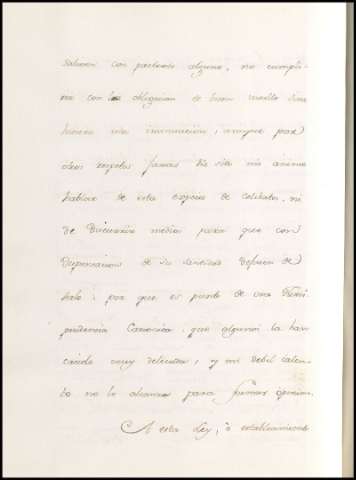 salveen con pretexto alguno, no cumpli-
ria con las obligacion de buen vasallo si no
hiciera esta insinuacion; aunque por
otros respetos jamas ha sido mi animo
hablar de esta especie de celibatos, ni
de discurrir medios para que con
dispensacion de su Santidad dejasen de
halo: por que es punto de una
prudencia Canonica, que algunos la han
creido muy delicada; y mi debil talen-
to no lo alcanza para formar opinion.
A esta Ley, ò establecimiento